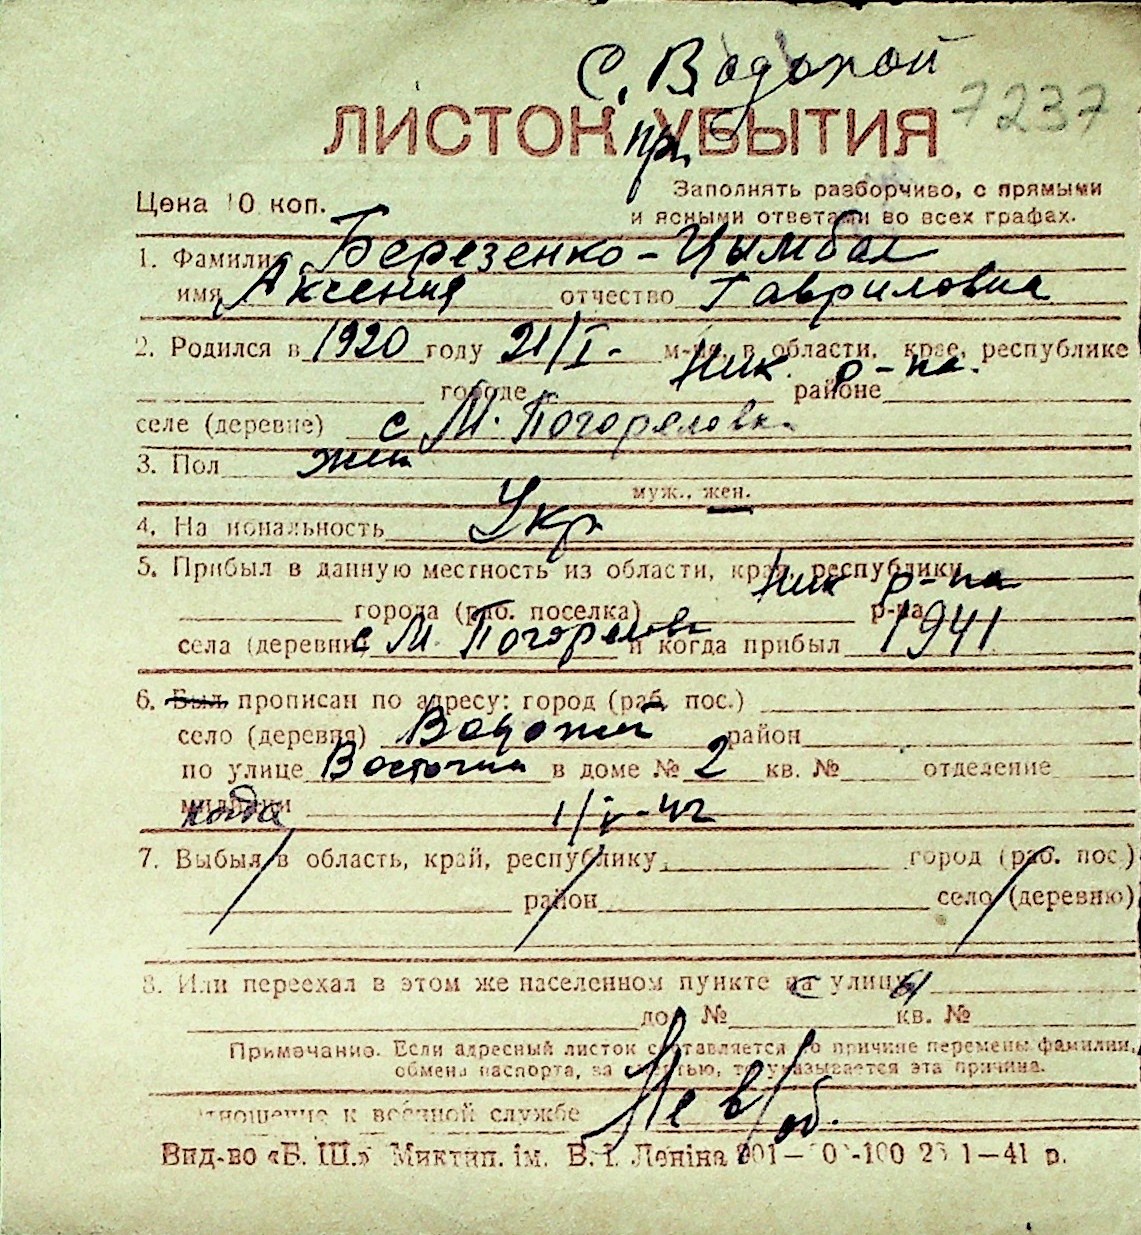 с. Водопой
7237
ЛИСТОК УБЫТИЯ
пр.
Цена 10 коп.
Заполнять разборчиво, с прямыми
и ясными ответами во всех графах.
1. Фамилия Березенко-Цымбал
имя Аксения отчество Гавриловна
2. Родился в 1920 году 21/I- м-це, в области, крае, республике
городе Ник. районе р-на.
селе (деревне) с М. Погореловк.
3. Пол жен
муж., жен.
4. Национальность Укр
5. Прибыл в данную местность из области, края, республики
города (раб. поселка) Ник р-на р-на
села (деревни) с М. Погорелов и когда прибыл 1941
6. Был прописан по адресу: город (раб. пос.)
село (деревня) Водопой район
по улице Восточна в доме № 2 кв. № отделение
милиции когда 1/V-42
7. Выбыл в область, край, республику город (раб. пос.)
район село (деревню)
8. Или переехал в этом же населенном пункте на улицу
дом № кв. №
Примечание. Если адресный листок составляется по причине перемены фамилии,
обмена паспорта, за смертью, то указывается эта причина.
Отношение к военной службе Не в/об.
Вид-во «Б. Ш.» Миктип. ім. В. І. Леніна 23 1—41 р.